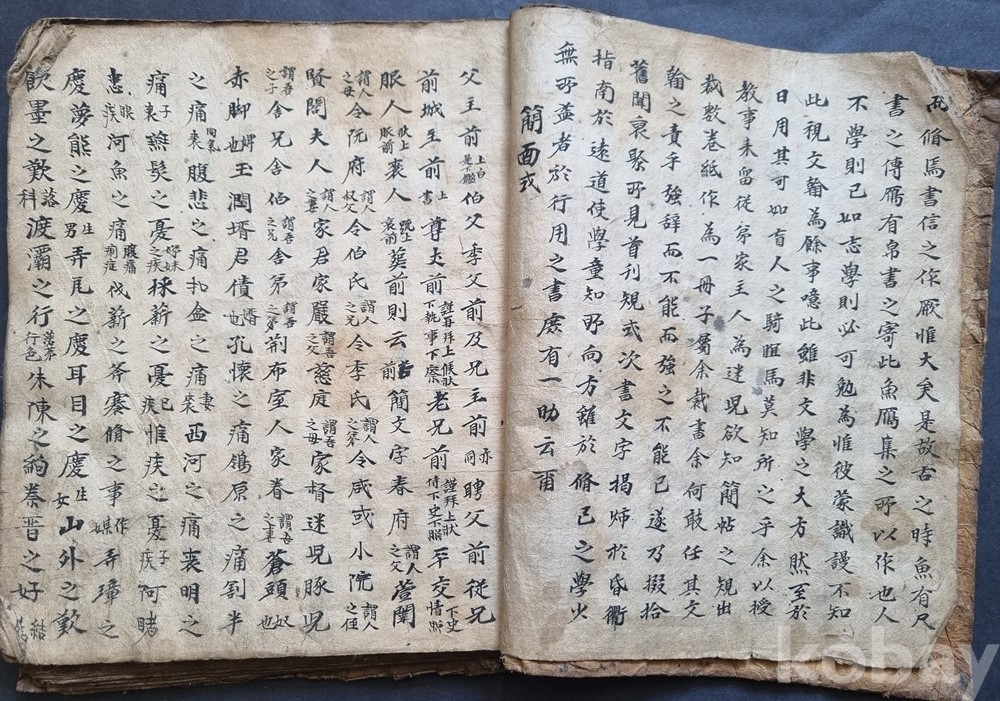 而脩焉書信之作厥惟大矣是故古之時魚有尺
書之傳鴈有帛書之寄此魚鴈集之所以作也人
不學則已如志學則必可勉為惟彼蒙識謾不知
此視文翰為餘事噫此雖非文學之大方然至於
日用其可如盲人之騎駔馬莫知所之乎余以授
教事來留從弟家主人為迷児欲知簡帖之規出
裁數卷紙作為一冊子屬余裁書余何敢任其文
翰之責乎強辞而不能而強之不能已遂乃掇拾
舊聞裒聚所見首刊規式次書文字揭師於昏衢
指南於遠道使學童知所向方雖於脩己之學少
無所益者於行用之書庶有一助云爾
簡面式
父主前 上白是下鑑 伯父季父前及兄主前 亦同 聘父前從兄
前城主前 上書 尊丈前 謹再拜上候狀下執事下察 老兄前 謹拜上狀侍下史下照 平交 情照下史
服人 狀上服前 喪人 疏上哀前 葬前則云 前 簡文字春府 謂人之父 萱闈
謂人之母 令阮府 謂人叔父 令伯氏 謂人之兄 令季氏 謂人之弟 令咸或小阮 謂人之侄
賢閤夫人 謂人之妻 家君家嚴 謂吾之父 慈庭 謂吾之母 家督迷児豚児
謂吾之子 舍兄舍伯 謂吾之兄 舍弟 謂吾之弟 荊布室人家眷 謂吾之妻 蒼頭 奴也
赤脚 婢也 玉潤壻君倩 壻也 孔懷之痛鴒原之痛割半
之痛 同氣喪 腹悲之痛扣盆之痛 妻喪 西河之痛喪明之
痛 子喪 燕髮之憂 姊妹之疾 採薪之憂 己疾 惟疾之憂 子疾 阿睹
患 眼疾 河魚之痛 腹痛痢症 伐薪之斧蹇脩之事 作媒 弄璋之
慶夢熊之慶 生男 弄瓦之慶耳目之慶 生女 山外之歎
飲墨之歎 落科 渡灞之行 落莫行色 朱陳之約秦晉之好 結
kobay